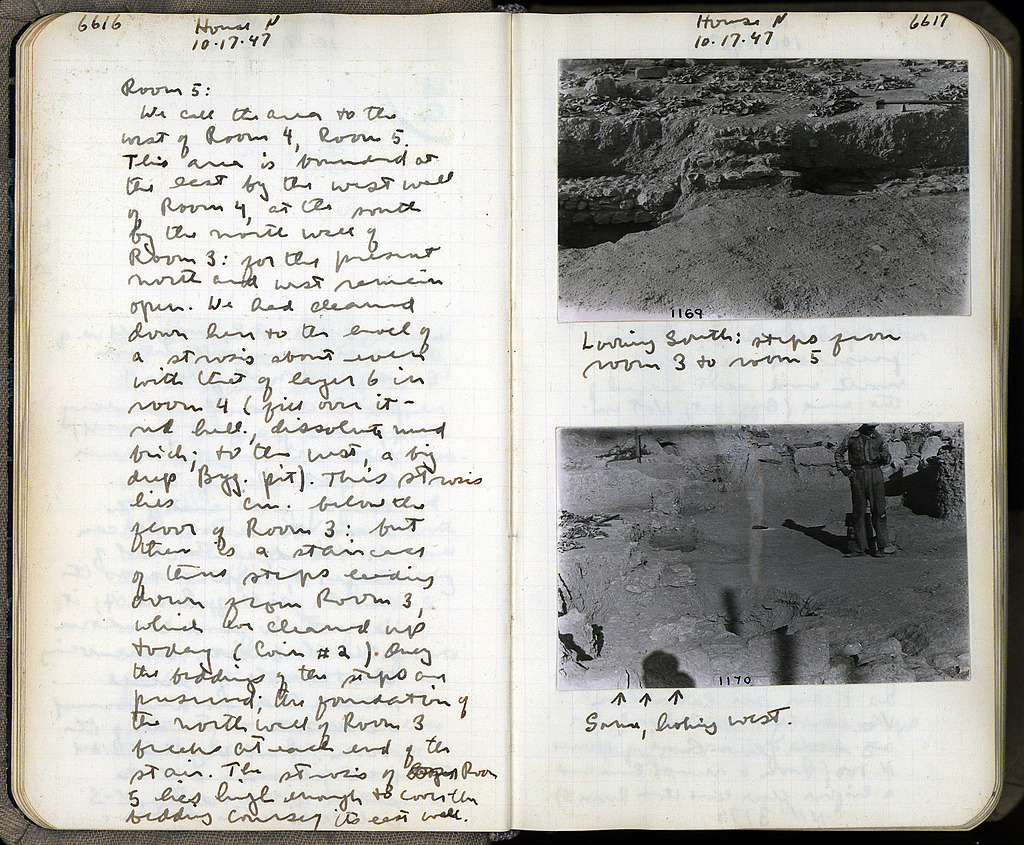 6616
House N
10·17·47
Room 5:
We call the area to the
west of Room 4, Room 5.
This area is bounded at
the east by the west wall
of Room 4, at the south
by the north wall of
Room 3: for the present
north and west remain
open. We had cleaned
down here to the level of
a strosis about even
with that of layer 6 in
room 4 (fill over it –
red fill, dissolved mud
brick; to the west, a big
deep Byz. pit). This strosis
lies cm. below the
floor of Room 3: but
there is a staircase
of three steps leading
down from Room 3,
which we cleaned up
today (Coin #2). Only
the beddings of the steps are
preserved; the foundation of
the north wall of Room 3
at each end of the
stair. The strosis of Room
5 lies high enough to cover the
bedding course of its east wall.
6617
House N
10·17·47
1169
Looking South: steps from
room 3 to room 5
1170
↑ ↑ ↑
Same, looking west.